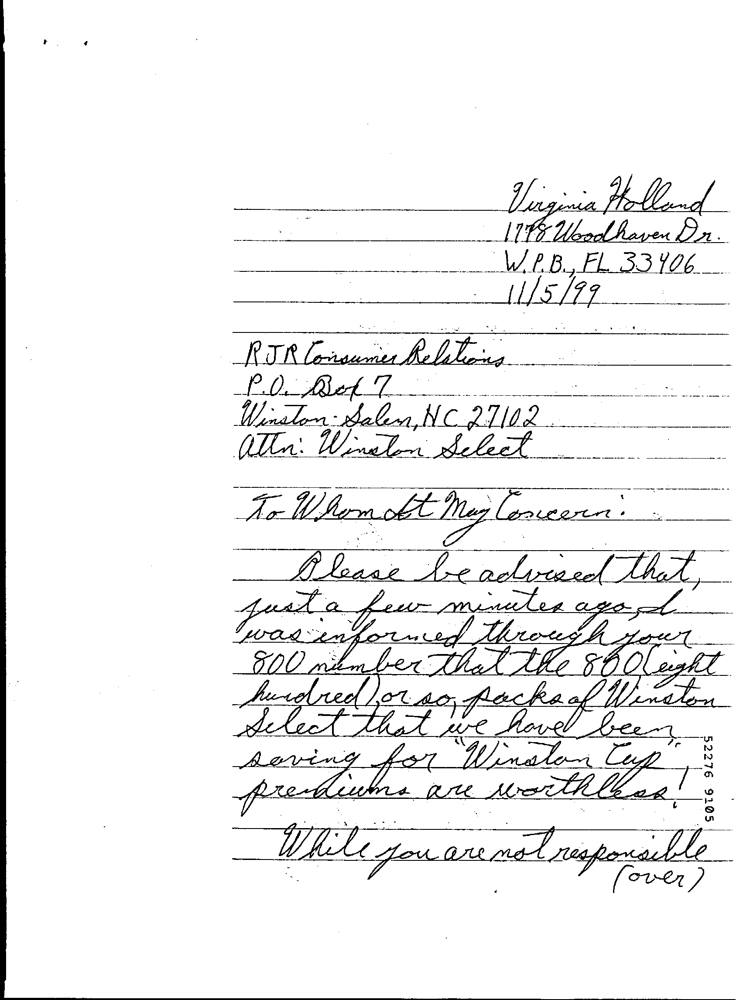 Virginia Holland
1778 Woodhaven Dr.
W.P.B., FL 33406
11/5/99
RJR Consumer Relations
P.O. Box 7
Winston-Salem, NC 27102
Attn: Winston Select
To Whom It May Concern:
Please be advised that,
just a few minutes ago, I
was informed through your
800 number that the 800 (eight
hundred), or so, packs of Winston
Select that we have been
saving for "Winston Cup"
premiums are worthless!
While you are not responsible
(over)
52276 9105